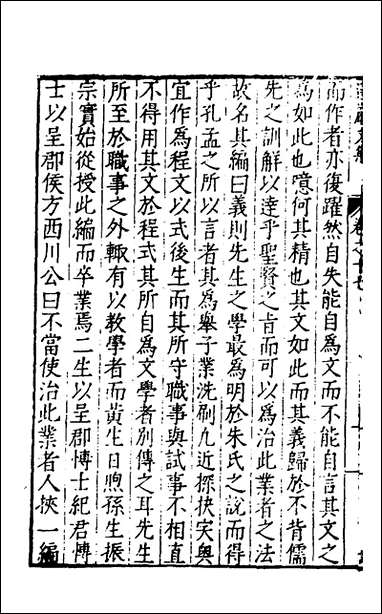 而作者亦復躍然自失能自為文而不能自言其文之
為如此也噫何其精也其文如此而其義歸於不背儒
先之訓解以達乎聖賢之旨而可以為治此業者之法
故名其編曰義則先生之學最為明於朱氏之說而得
乎孔孟之所以言者其為舉子業洗刷凡近探抉突奧
宜作為程文以式後生而其所守職事與試事不相直
不得用其文於程式其所自為文學者別傳之耳先生
所至於職事之外輙有以教學者而黃生日煦孫生振
宗實始從授此編而卒業焉二生以呈郡博士紀君博
士以呈郡侯方西川公曰不當使治此業者人挾一編